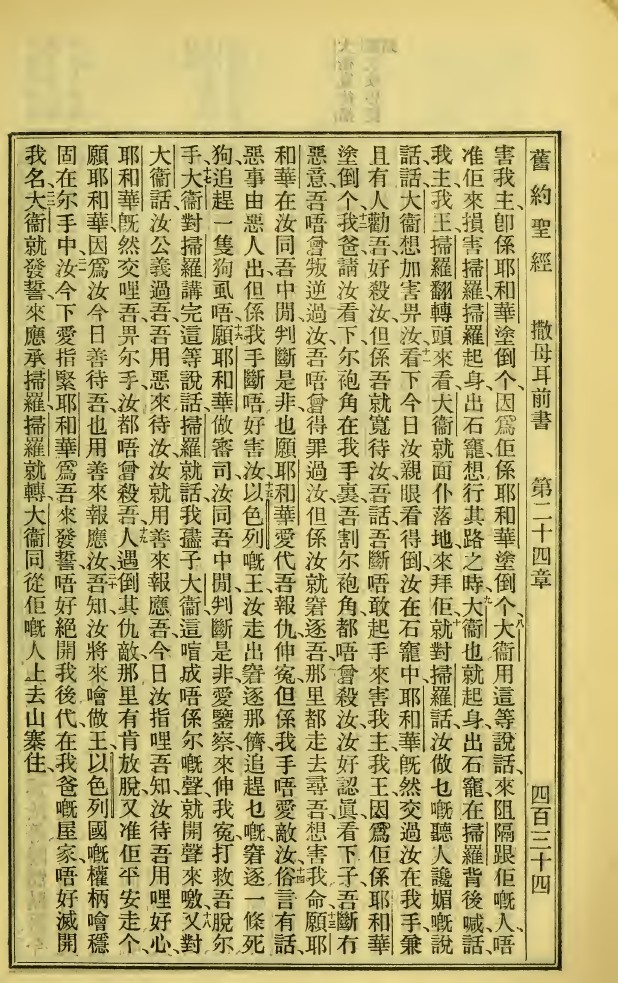 舊約聖經 撒母耳前書 第二十四章 四百三十四
害我主、卽係耶和華塗倒个、因爲佢係耶和華塗倒个、八大衞用這等說話、來阻隔跟佢嘅人、唔
准佢來損害掃羅、掃羅起身、出石竉、想行其路之時、九大衞也就起身、出石竉、在掃羅背後喊話、
我主我王、掃羅翻轉頭來看、大衞就面仆落地、來拜佢、十就對掃羅話、汝做乜嘅聽人讒媚嘅說
話、話大衞想加害畀汝、十一看下今日汝親眼看得倒、汝在石竉中、耶和華旣然交過汝在我手、兼
且有人勸吾好殺汝、但係吾就寬待汝、吾話、吾斷唔敢起手來害我主我王、因爲佢係耶和華
塗倒个、十二我爸、請汝看下、尔袍角在我手裏、吾割尔袍角、都唔曾殺汝、汝好認眞看下子、吾斷冇
惡意、吾唔曾叛逆過汝、吾唔曾得罪過汝、但係汝就窘逐吾、那里都走去尋吾、想害我命、十三願耶
和華在汝同吾中閒判斷是非、也願耶和華愛代吾報仇伸寃、但係我手唔愛敵汝、十四俗言有話、
惡事由惡人出、但係我手斷唔好害汝、十五以色列嘅王、汝走出窘逐那儕、追趕乜嘅、窘逐一條死
狗、追趕一隻狗虱唔、十六願耶和華做審司、汝同吾中閒、判斷是非、愛鑒察來伸我寃、打救吾脫尔
手、十七大衞對掃羅講完這等說話、掃羅就話、我孻子大衞、這喧成唔係尔嘅聲、就開聲來噭、十八又對
大衞話、汝公義過吾、吾用惡來待汝、汝就用善來報應吾、今日汝指哩吾知、汝待吾用哩好心、
耶和華旣然交哩吾畀尔手、汝都唔曾殺吾、十九人遇倒其仇敵、那里有肯放脫、又准佢平安走个、
願耶和華因爲汝今日善待吾、也用善來報應汝、二十吾知汝將來噲做王、以色列國嘅權柄噲穩
固在尔手中、二一汝今下愛指緊耶和華爲吾來發誓、唔好絕開我後代、在我爸嘅屋家、唔好滅開
我名、二二大衞就發誓來應承掃羅、掃羅就轉、大衞同從佢嘅人、上去山寨住、